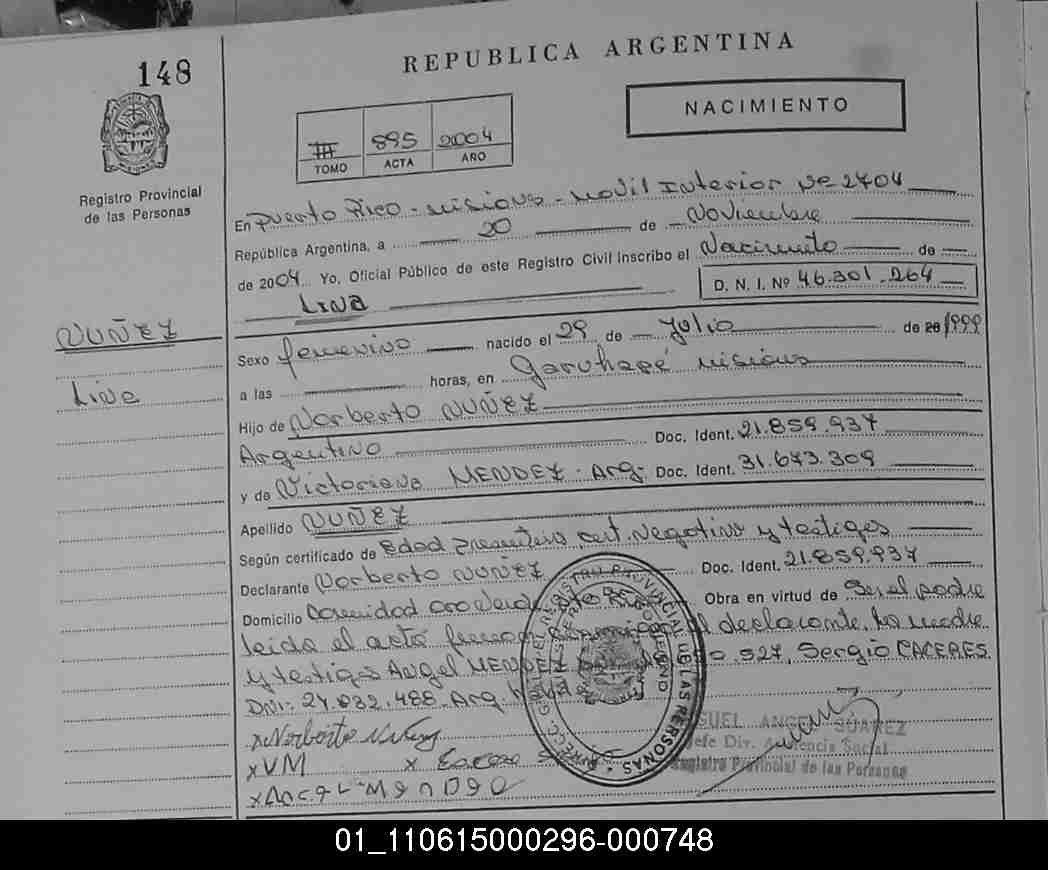 148
REPUBLICA ARGENTINA
NACIMIENTO
III 895 2004
TOMO ACTA AÑO
Registro Provincial
de las Personas
En Puerto Rico - Misiones - Movil Interior Nº 2704
República Argentina, a 20 de Noviembre
de 2004 Yo, Oficial Público de este Registro Civil Inscribo el Nacimiento de
LINA D. N. I. Nº 46.301.264
NUÑEZ
Lina
Sexo femenino nacido el 29 de Julio de 20 1999
a las horas, en Garuhapé Misiones
Hijo de Norberto NUÑEZ
Argentino Doc. Ident. 21.859.937
y de Victoriana MENDEZ - Arg. Doc. Ident. 31.643.309
Apellido NUÑEZ
Según certificado de Edad Presuntiva, cert. Negativo y testigos
Declarante Norberto NUÑEZ Doc. Ident. 21.859.937
Domicilio Comunidad Obra en virtud de Ser el padre
leida el acta firman el declarante, la madre
y testigos Angel MENDEZ 527, Sergio CACERES
DNI: 24.832.488. Arg.
x Norberto Nuñez
x VM x
x Angel Mendez
REGISTRO PROVINCIAL DE LAS PERSONAS
MIGUEL ANGEL SUAREZ
Jefe Div. Asistencia Social
Registro Provincial de las Personas
01_110615000296-000748